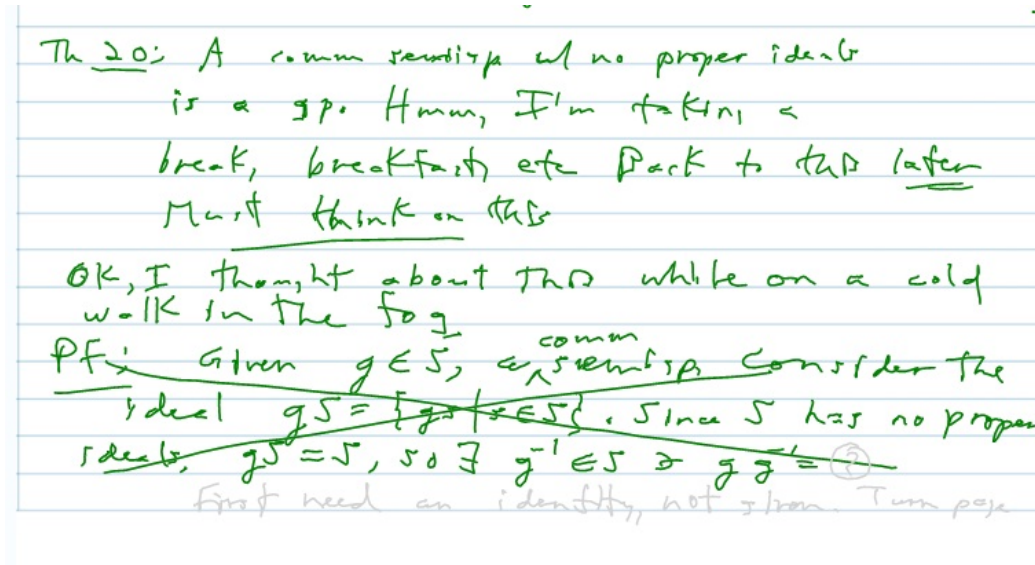 Th 20: A comm semigp w/ no proper ideals
is a gp. Hmm, I'm taking a
break, breakfast, etc Back to this later
Must think on this
OK, I thought about this while on a cold
walk in the fog
Pf: Given g ∈ S, a comm semigp, consider the
ideal gS = {gs | s ∈ S}. Since S has no proper
ideals, gS = S, so ∃ g⁻¹ ∈ S ∋ g g⁻¹ = ?
First need an identity, not given. Turn page